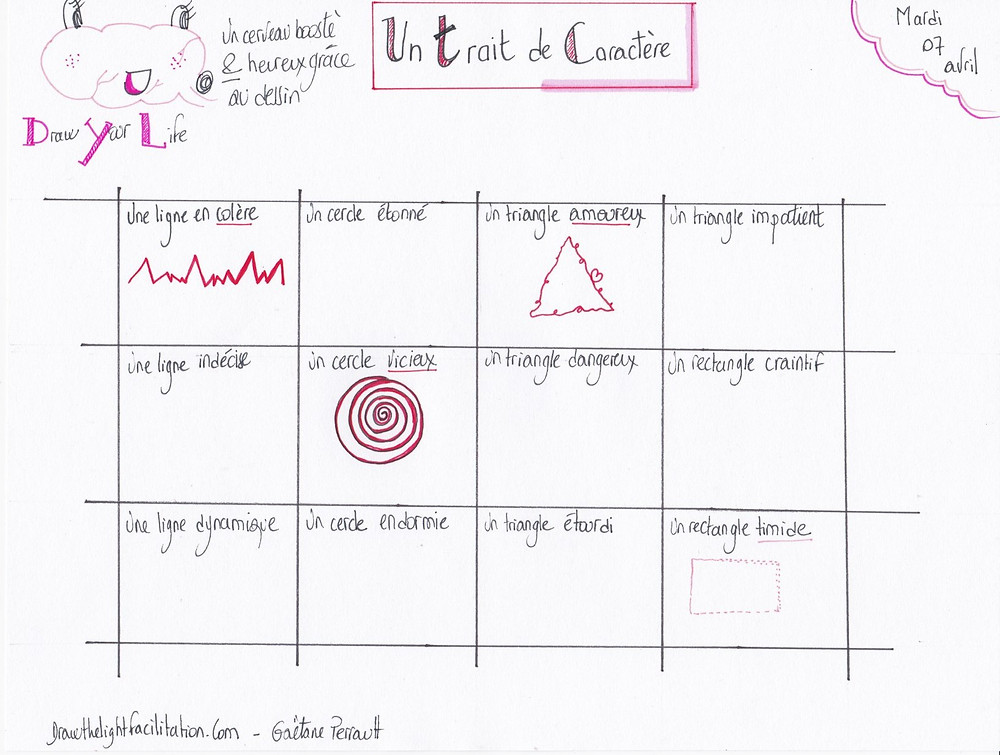 Un cerveau boosté
& heureux grâce
au dessin
Un trait de Caractère
Mardi
07
avril
Draw Your Life
Une ligne en colère
Un cercle étonné
Un triangle amoureux
Un triangle impatient
Une ligne indécise
Un cercle vicieux
Un triangle dangereux
Un rectangle craintif
Une ligne dynamique
Un cercle endormie
Un triangle étourdi
Un rectangle timide
Drawthelightfacilitation.com - Gaëtane Perrault